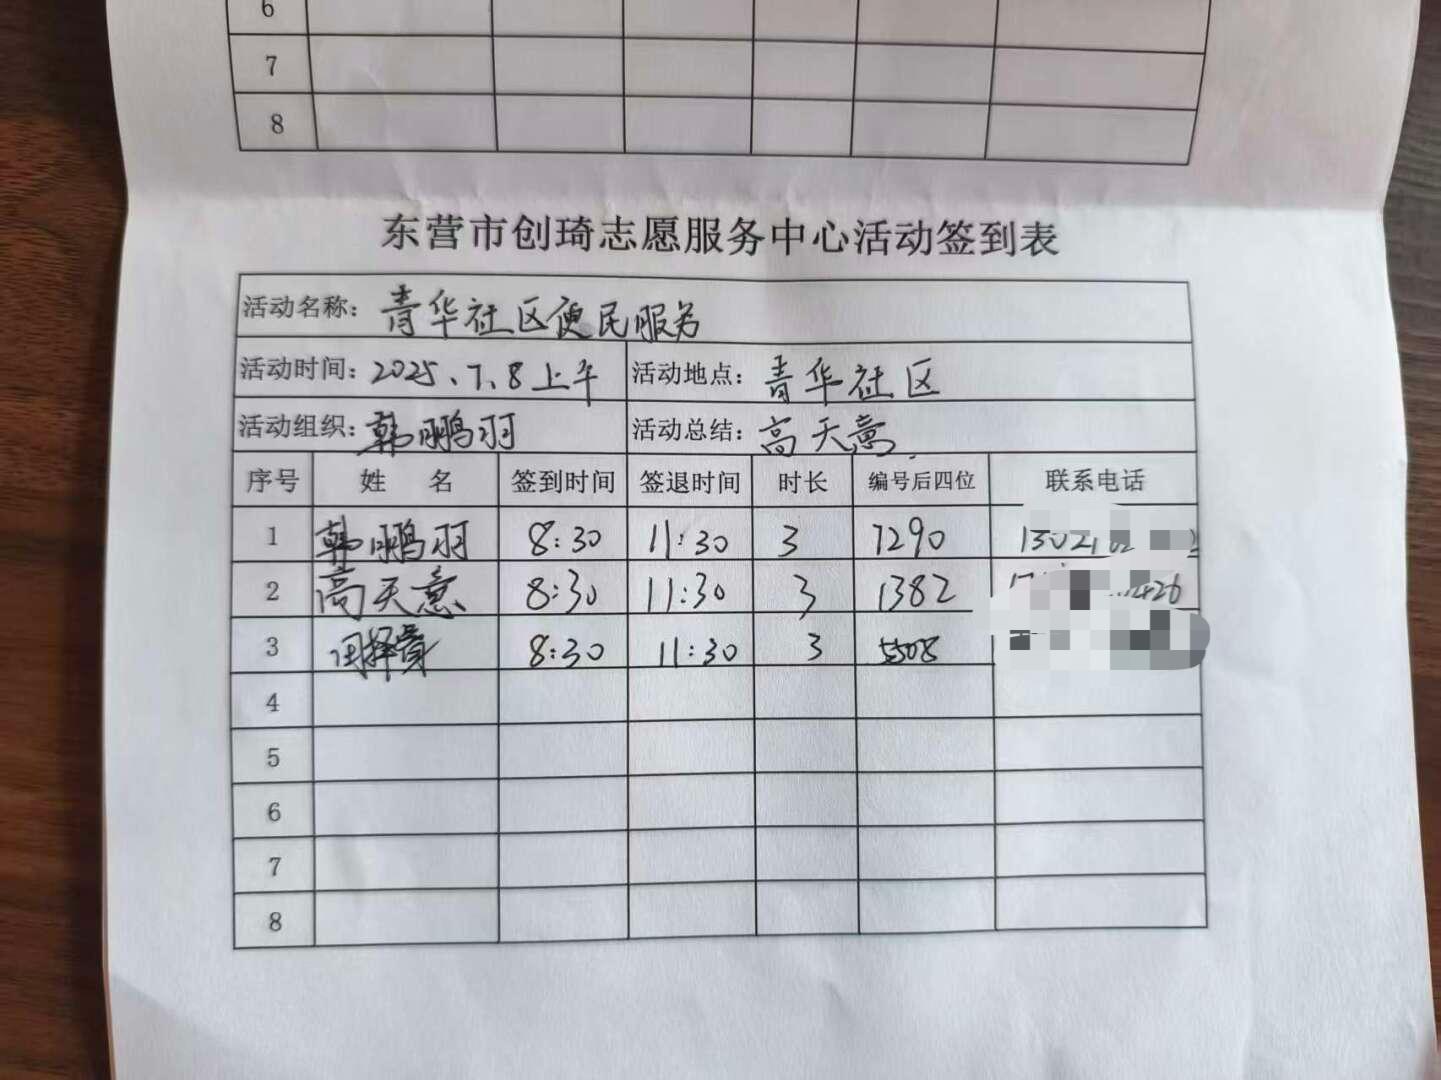 6
7
8
东营市创琦志愿服务中心活动签到表
活动名称：青华社区便民服务
活动时间：2025、7、8上午 活动地点：青华社区
活动组织：韩鹏羽 活动总结：高天意
序号 姓 名 签到时间 签退时间 时长 编号后四位 联系电话
1 韩鹏羽 8:30 11:30 3 7290
2 高天意 8:30 11:30 3 1382
3 8:30 11:30 3 5508
4
5
6
7
8